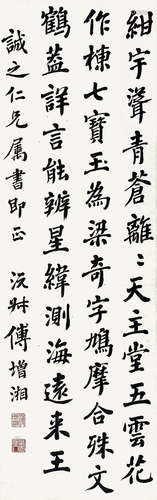 紺宇聳青蒼離〻天主堂五雲花
作棟七寶玉為梁奇字鳩摩合殊文
鶴蓋詳言能辨星緯測海遠来王
誠之仁兄属書即正 沅叔傅增湘